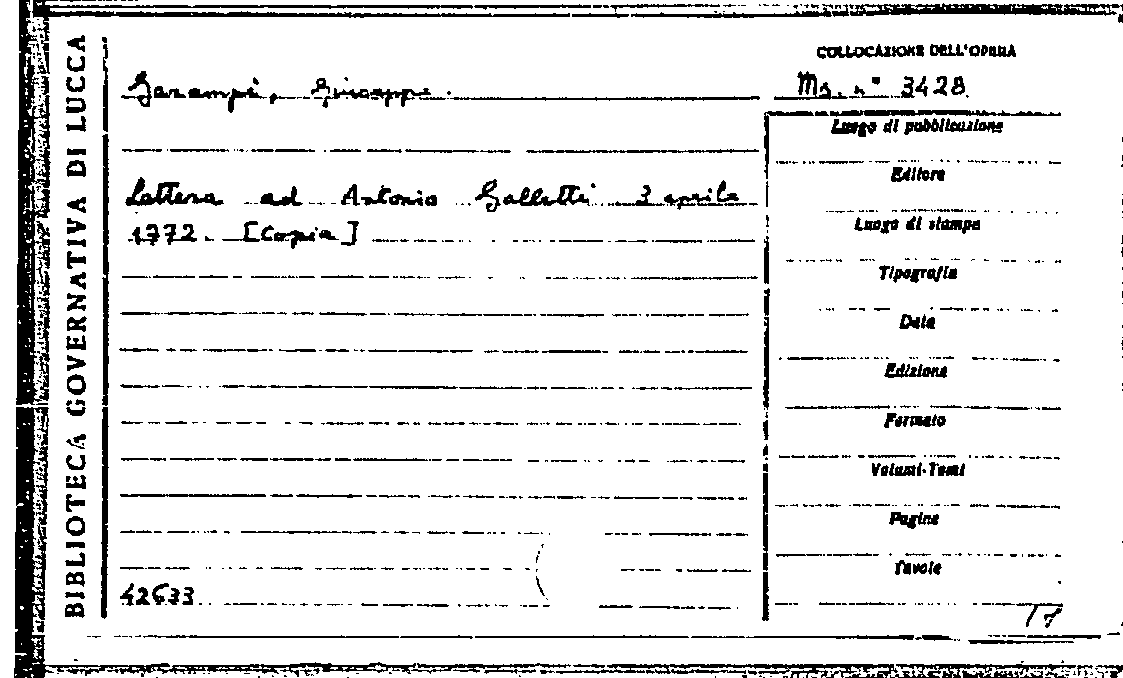 BIBLIOTECA GOVERNATIVA DI LUCCA
COLLOCAZIONE DELL'OPERA
Ms. n° 3428
Garampi, Giuseppe.
Lettera ad Antonio Galletti 3 aprile
1772. [Copia]
Luogo di pubblicazione
Editore
Luogo di stampa
Tipografia
Data
Edizione
Formato
Volumi-Tomi
Pagine
Tavole
42633